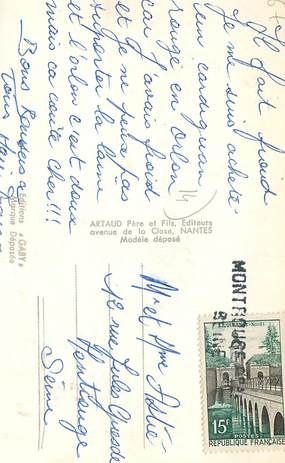 Il fait froid
je me suis acheté
un cardigan
rouge en orlon
car j'avais froid
et je ne peux pas
supporter la laine
et l'orlon c'est doux
mais ca coute cher!!!
Bons baisers à
tous
14
ARTAUD Père et Fils, Éditeurs
avenue de la Close, NANTES
Modèle déposé
Editions « GABY »
Marque Déposée
M. et Mme
12 rue Jules Guesde
Montrouge
Seine
15F
POSTES
REPUBLIQUE FRANÇAISE